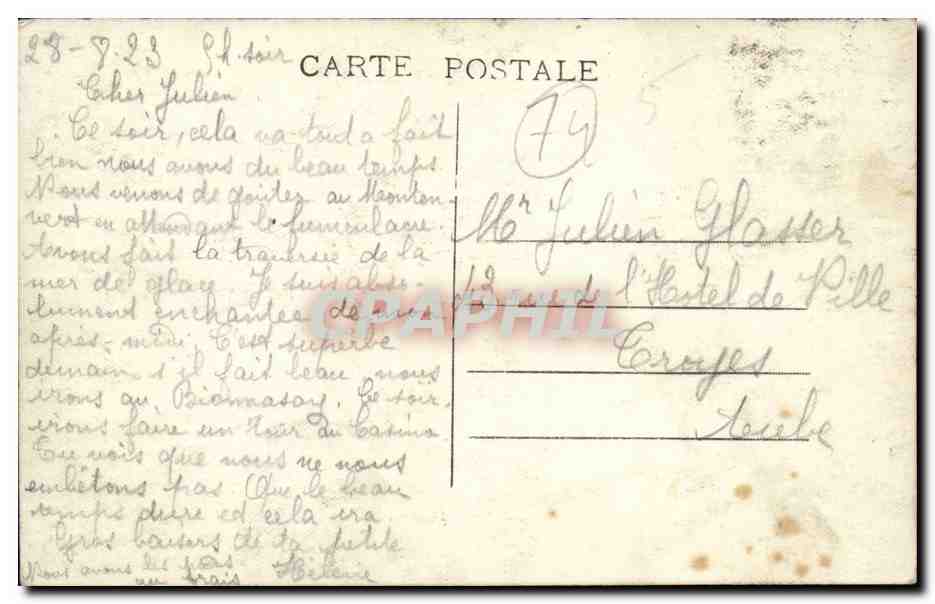 28-8.23 5h. soir
CARTE POSTALE
74
5
Cher Julien.
Ce soir, cela va tout a fait
bien nous avons du beau temps.
Nous venons de goûter au Monten-
vert en attendant le funiculaire.
Avons fait la traversée de la
mer de glace. Je suis abso-
lument enchantée de mon
après-midi. C'est superbe
demain s'il fait beau, nous
irons au Bionnassay. Ce soir,
irons faire un tour du Casino
Tu vois que nous ne nous
embêtons pas. Que le beau
temps dure et cela ira
Gros baisers de ta petite
Hélène
Nous avons les pieds
au frais
Mr Julien Glasser
13 rue de l'Hotel de Ville
Troyes
Aube
CPAPHIL